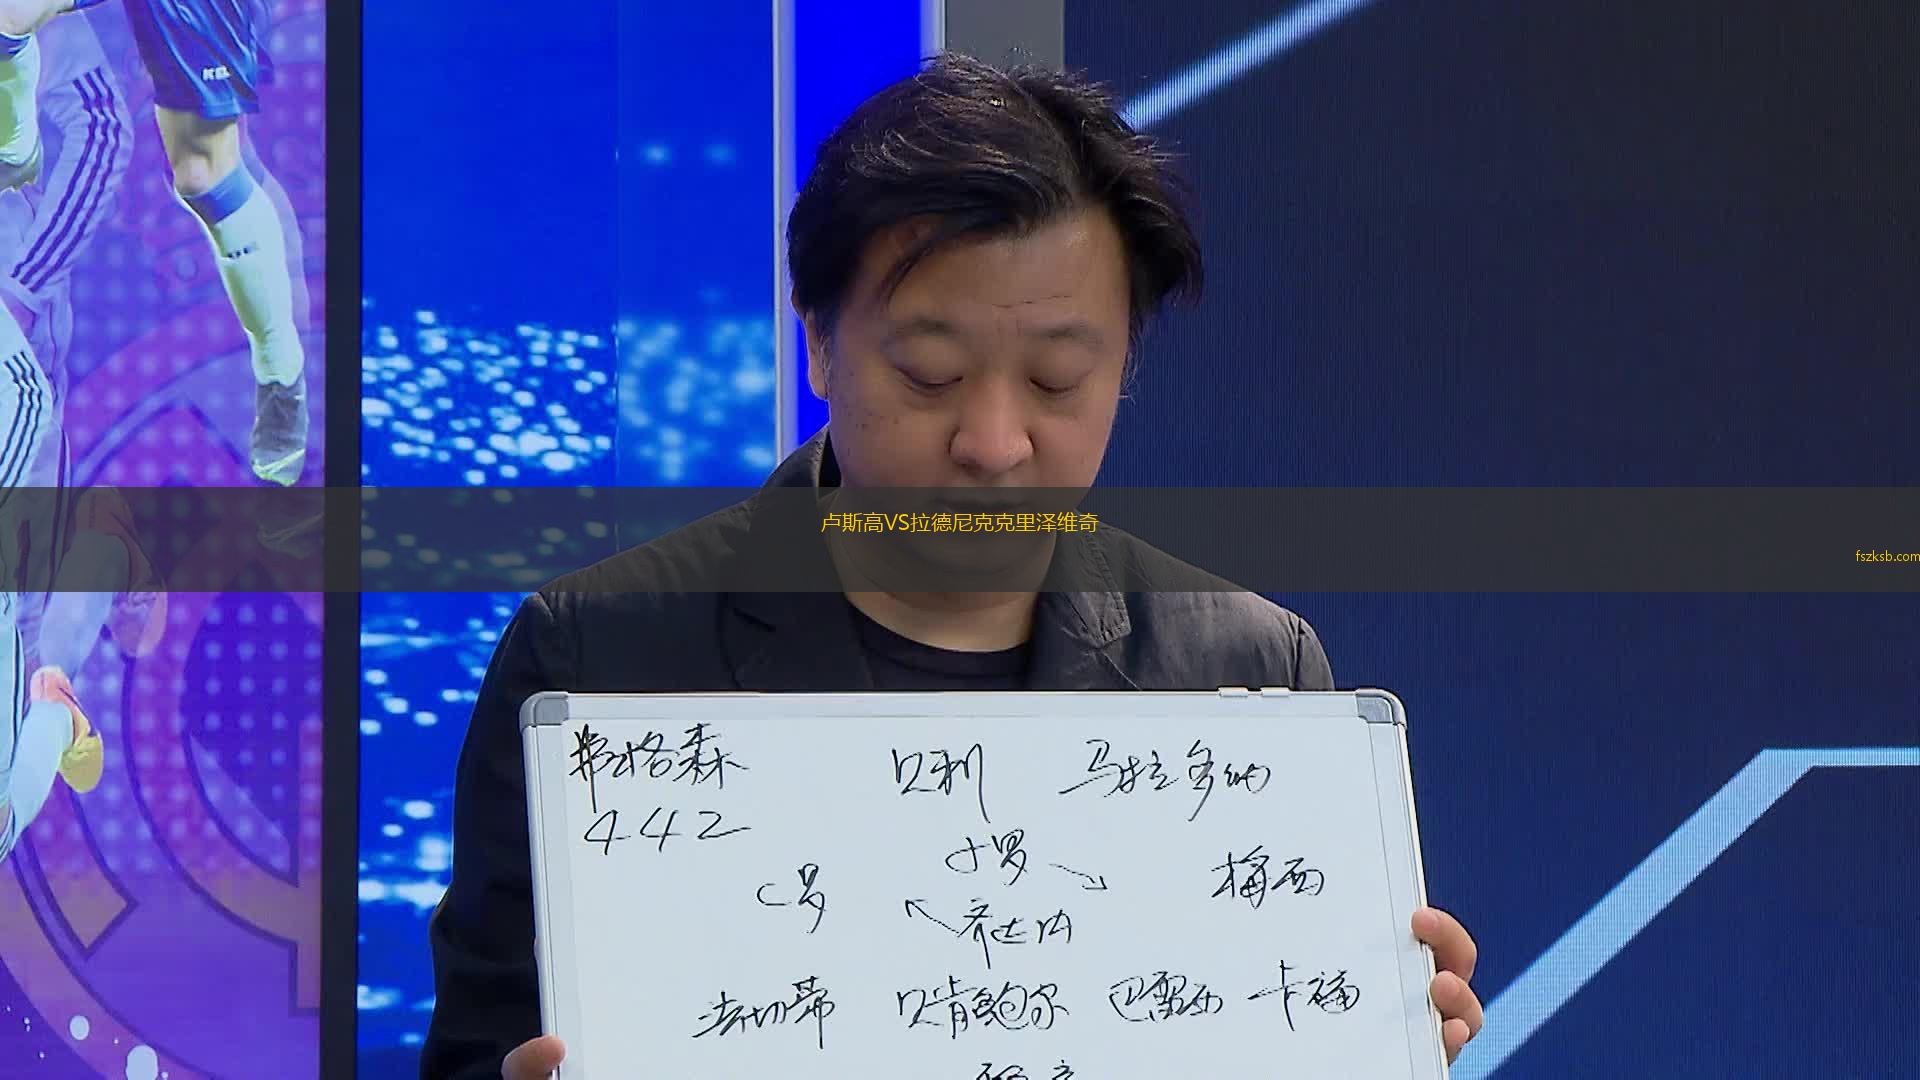 KEL
卢斯高VS拉德尼克克里泽维奇
fszksb.com
弗格森 贝利 马拉多纳
442
小罗
C罗 梅西
齐达内
法切蒂 贝肯鲍尔 巴雷西 卡福